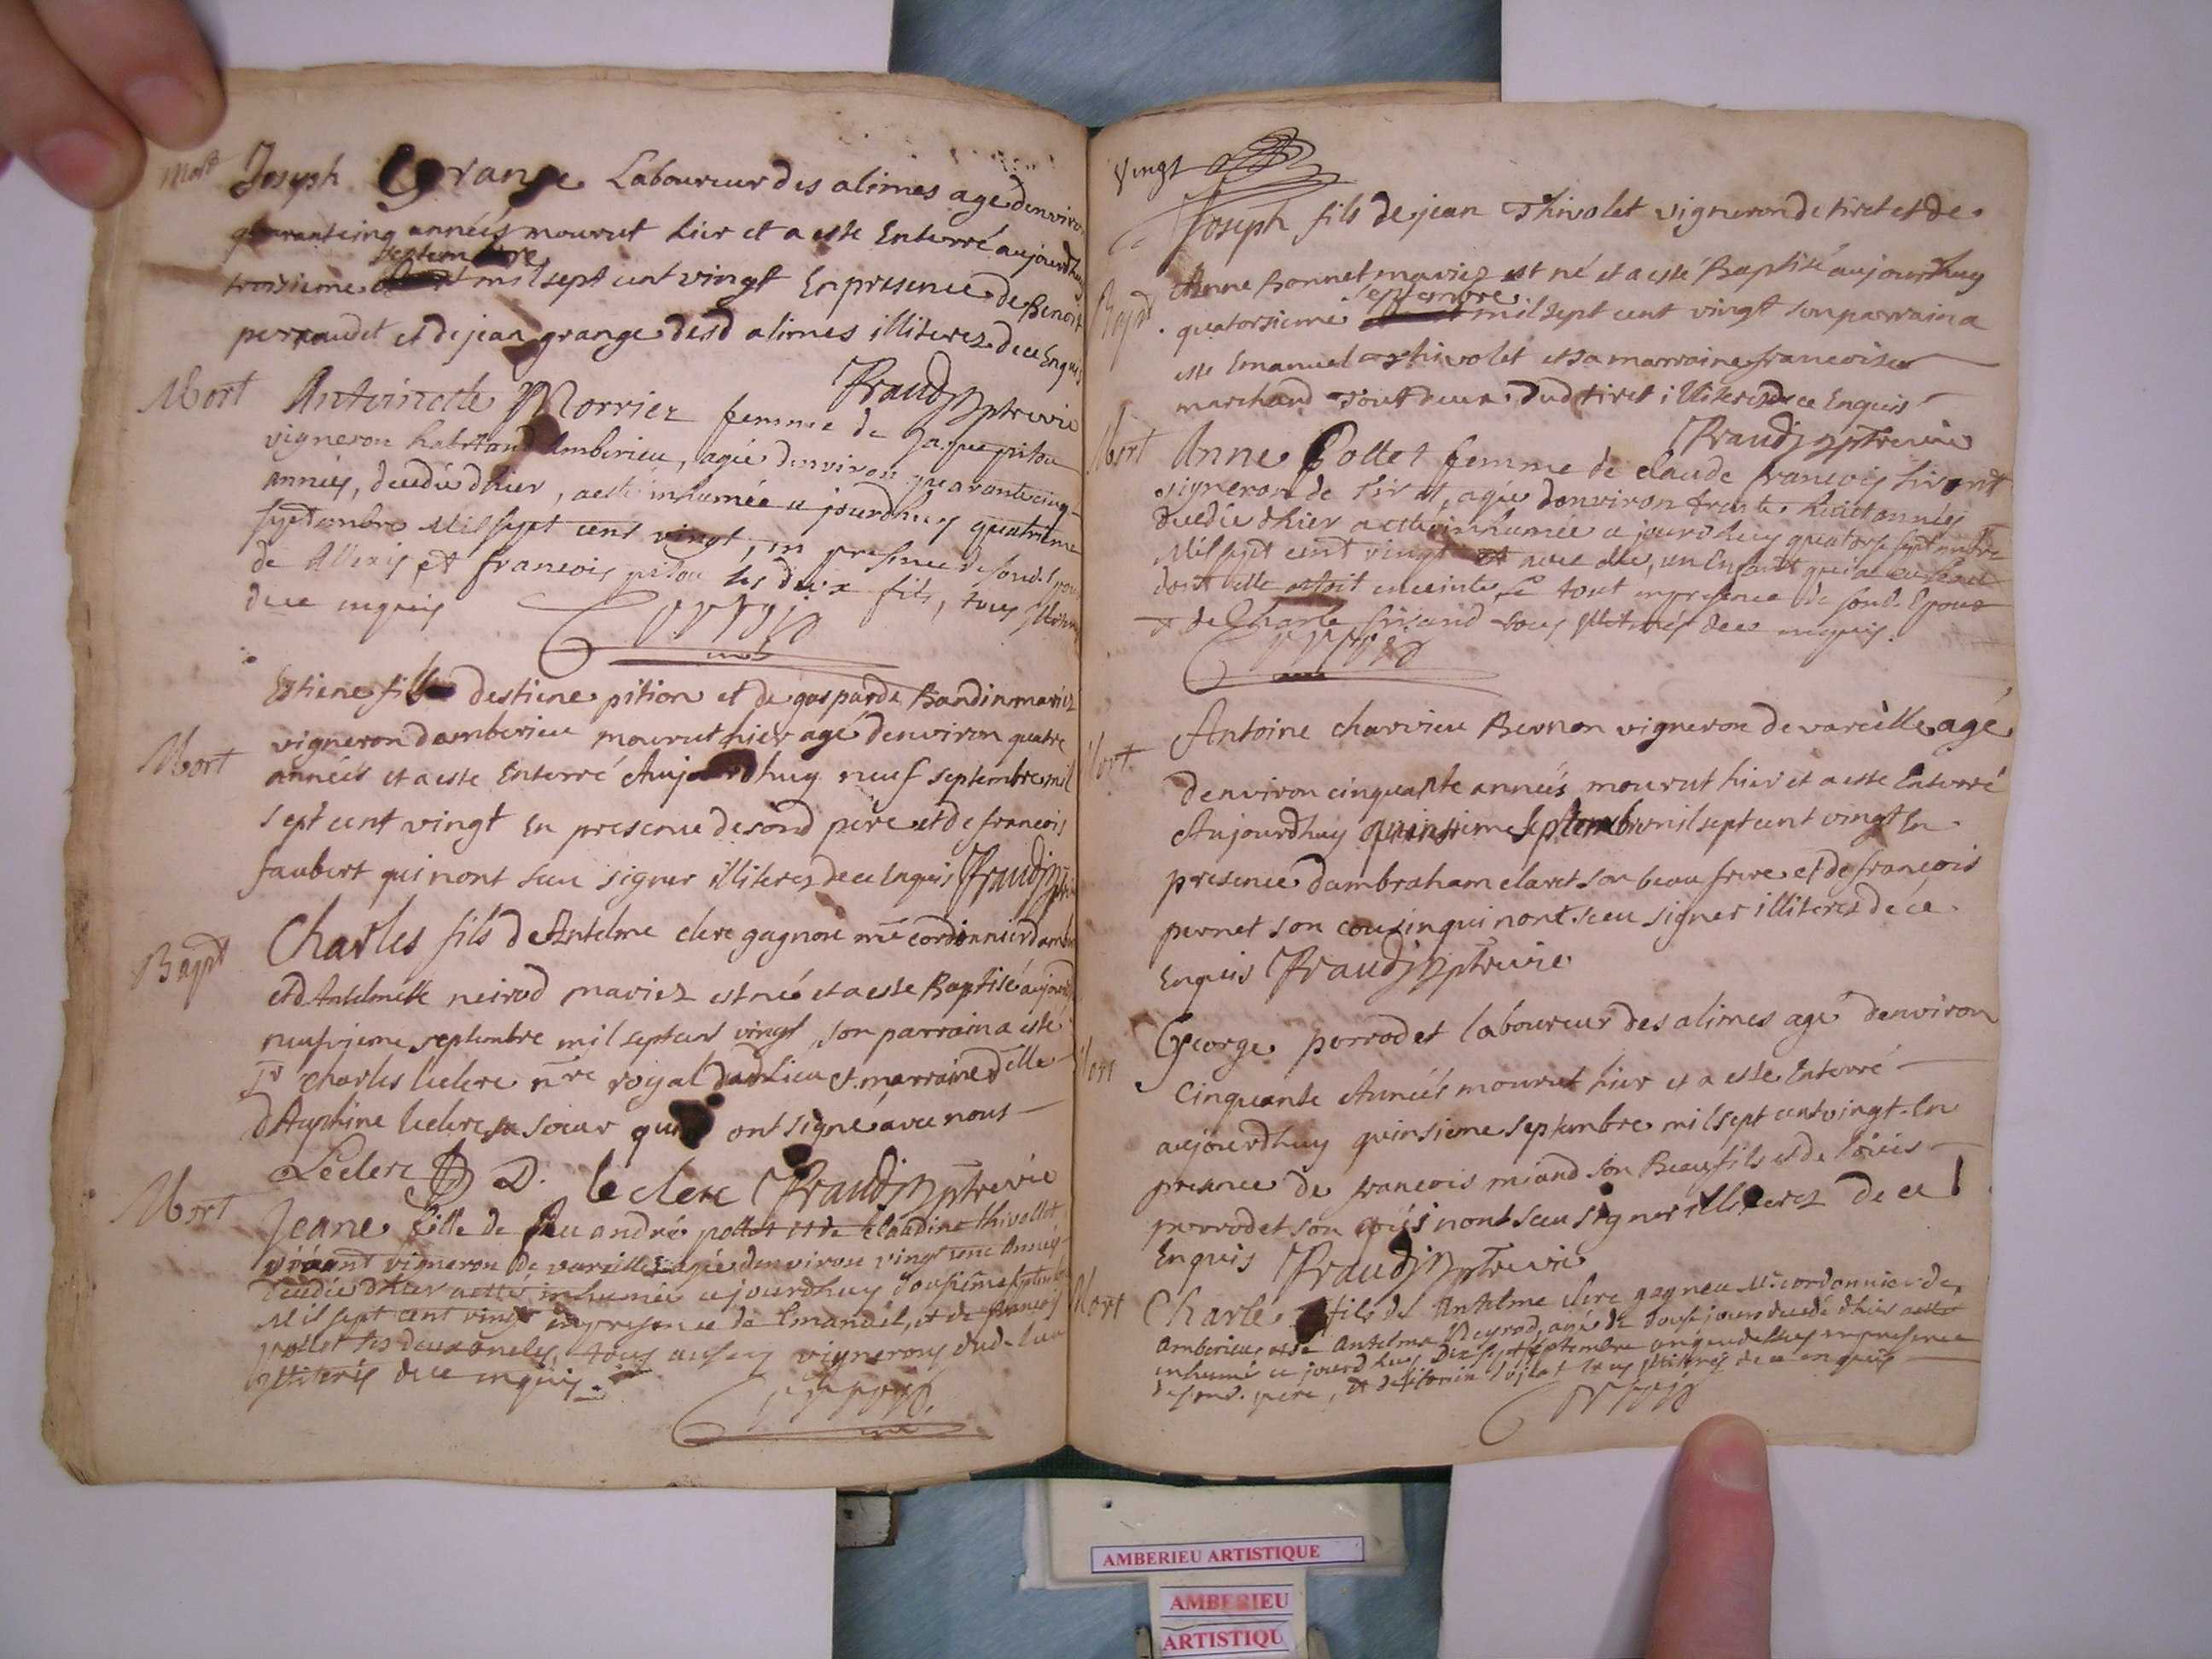 Mort Joseph Grange Laboureur des alimes agé denviron
quarantcinq années mourut hier et a esté Enterré aujourdhuy
septembre
troisieme mil sept cent vingt En presence de Benoit
perraudet et de jean grange desd alimes illiterez de ce Enquis
Fraud ptre vic
Mort Antoinette Morrier femme de Jaque pitou
vigneron habitand Amberieu, agée denviron quarante cinq
années, decedée dhier, a esté inhumée ajourdhuy quatrieme
septembre Mil sept cent vingt, en presence de sond. epoux
de Allexis et francois pitou ses deux fils, tous illiteres
de ce enquis
Estiene fils destiene pition et de gasparde Bandin mariez
vigneron damberieu mourut hier agé denviron quatre
Mort années et a esté Enterré Aujourdhuy neuf septembre mil
sept cent vingt En presence de sond père et de francois
faubert qui nont sceu signer illiterez de ce Enquis Fraud ptre
Bapt Charles fils de Antelme clerc gagneu me cordonnier damb
et d Antelmette neirod mariez est né et a esté Baptisé aujourd
neufvieme septembre mil sept cent vingt, son parrain a esté
Sr Charles leclerc nre royal dud lieu et marraine delle
dAuphine leclerc sa soeur qui ont signé avec nous
Leclerc D. leclerc Fraud ptre vic
Mort Jeane fille de feu andré pollet et de Claudine thivollet
vivant vigneron de vareille agée denviron vingt une Années
decedée dhier a esté inhumée ajourdhuy dousieme septembre
Mil sept cent vingt en presence de Emanuel, et de francois
pollet ses deux oncles tous aussy vignerons dud. lieu
illiterés de ce enquis
vingt
Joseph fils de jean Thivolet vigneron de tiret et de
Anne Bonnet mariez est né et a esté Baptisé aujourdhuy
septembre
Bapt quatorsieme mil sept cent vingt son parrain a
esté Emanuel Thivolet et sa marraine francoise
marchand tout deux dud tiret illiterez de ce Enquis
Fraud ptre vic
Mort Anne Pollet femme de claude francois
vigneron de tiret, agée denviron trente huict années
decedée dhier a esté inhumée ajourdhuy quatorse septembre
Mil sept cent vingt et avec elle, un Enfant
dont elle estoit enceinte, le tout en presence de sond. Epoux
et de Charle tous illiterés de ce enquis.
Antoine charvieu Bernon vigneron de vareille agé
Mort denviron cinquante années mourut hier et a esté Enterré
Aujourdhuy quinsieme septembre mil sept cent vingt En
presence dambraham claret son beau frere et de francois
pernet son cousin qui nont sceu signer illiterez de ce
Enquis Fraud ptre vic
George perrodet laboureur des alimes agé denviron
Mort cinquante Années mourut hier et a esté Enterré
aujourdhuy quinsieme septembre mil sept cent vingt. En
presence de francois miand son Beaufils et de louis
perrodet son fils nont sceu signer illiterez de ce
Enquis Fraud ptre vic
Mort Charle fils de Antelme clerc gagneu Me cordonnier de
Amberieu et de Antelma Neyrod, agé de dousejours decedé dhier a esté
inhumé ajourdhuy Dix sept septembre an que dessus en presence
de sond. pere, et de tous illiterés de ce enquis
AMBERIEU ARTISTIQUE
AMBERIEU
ARTISTIQU